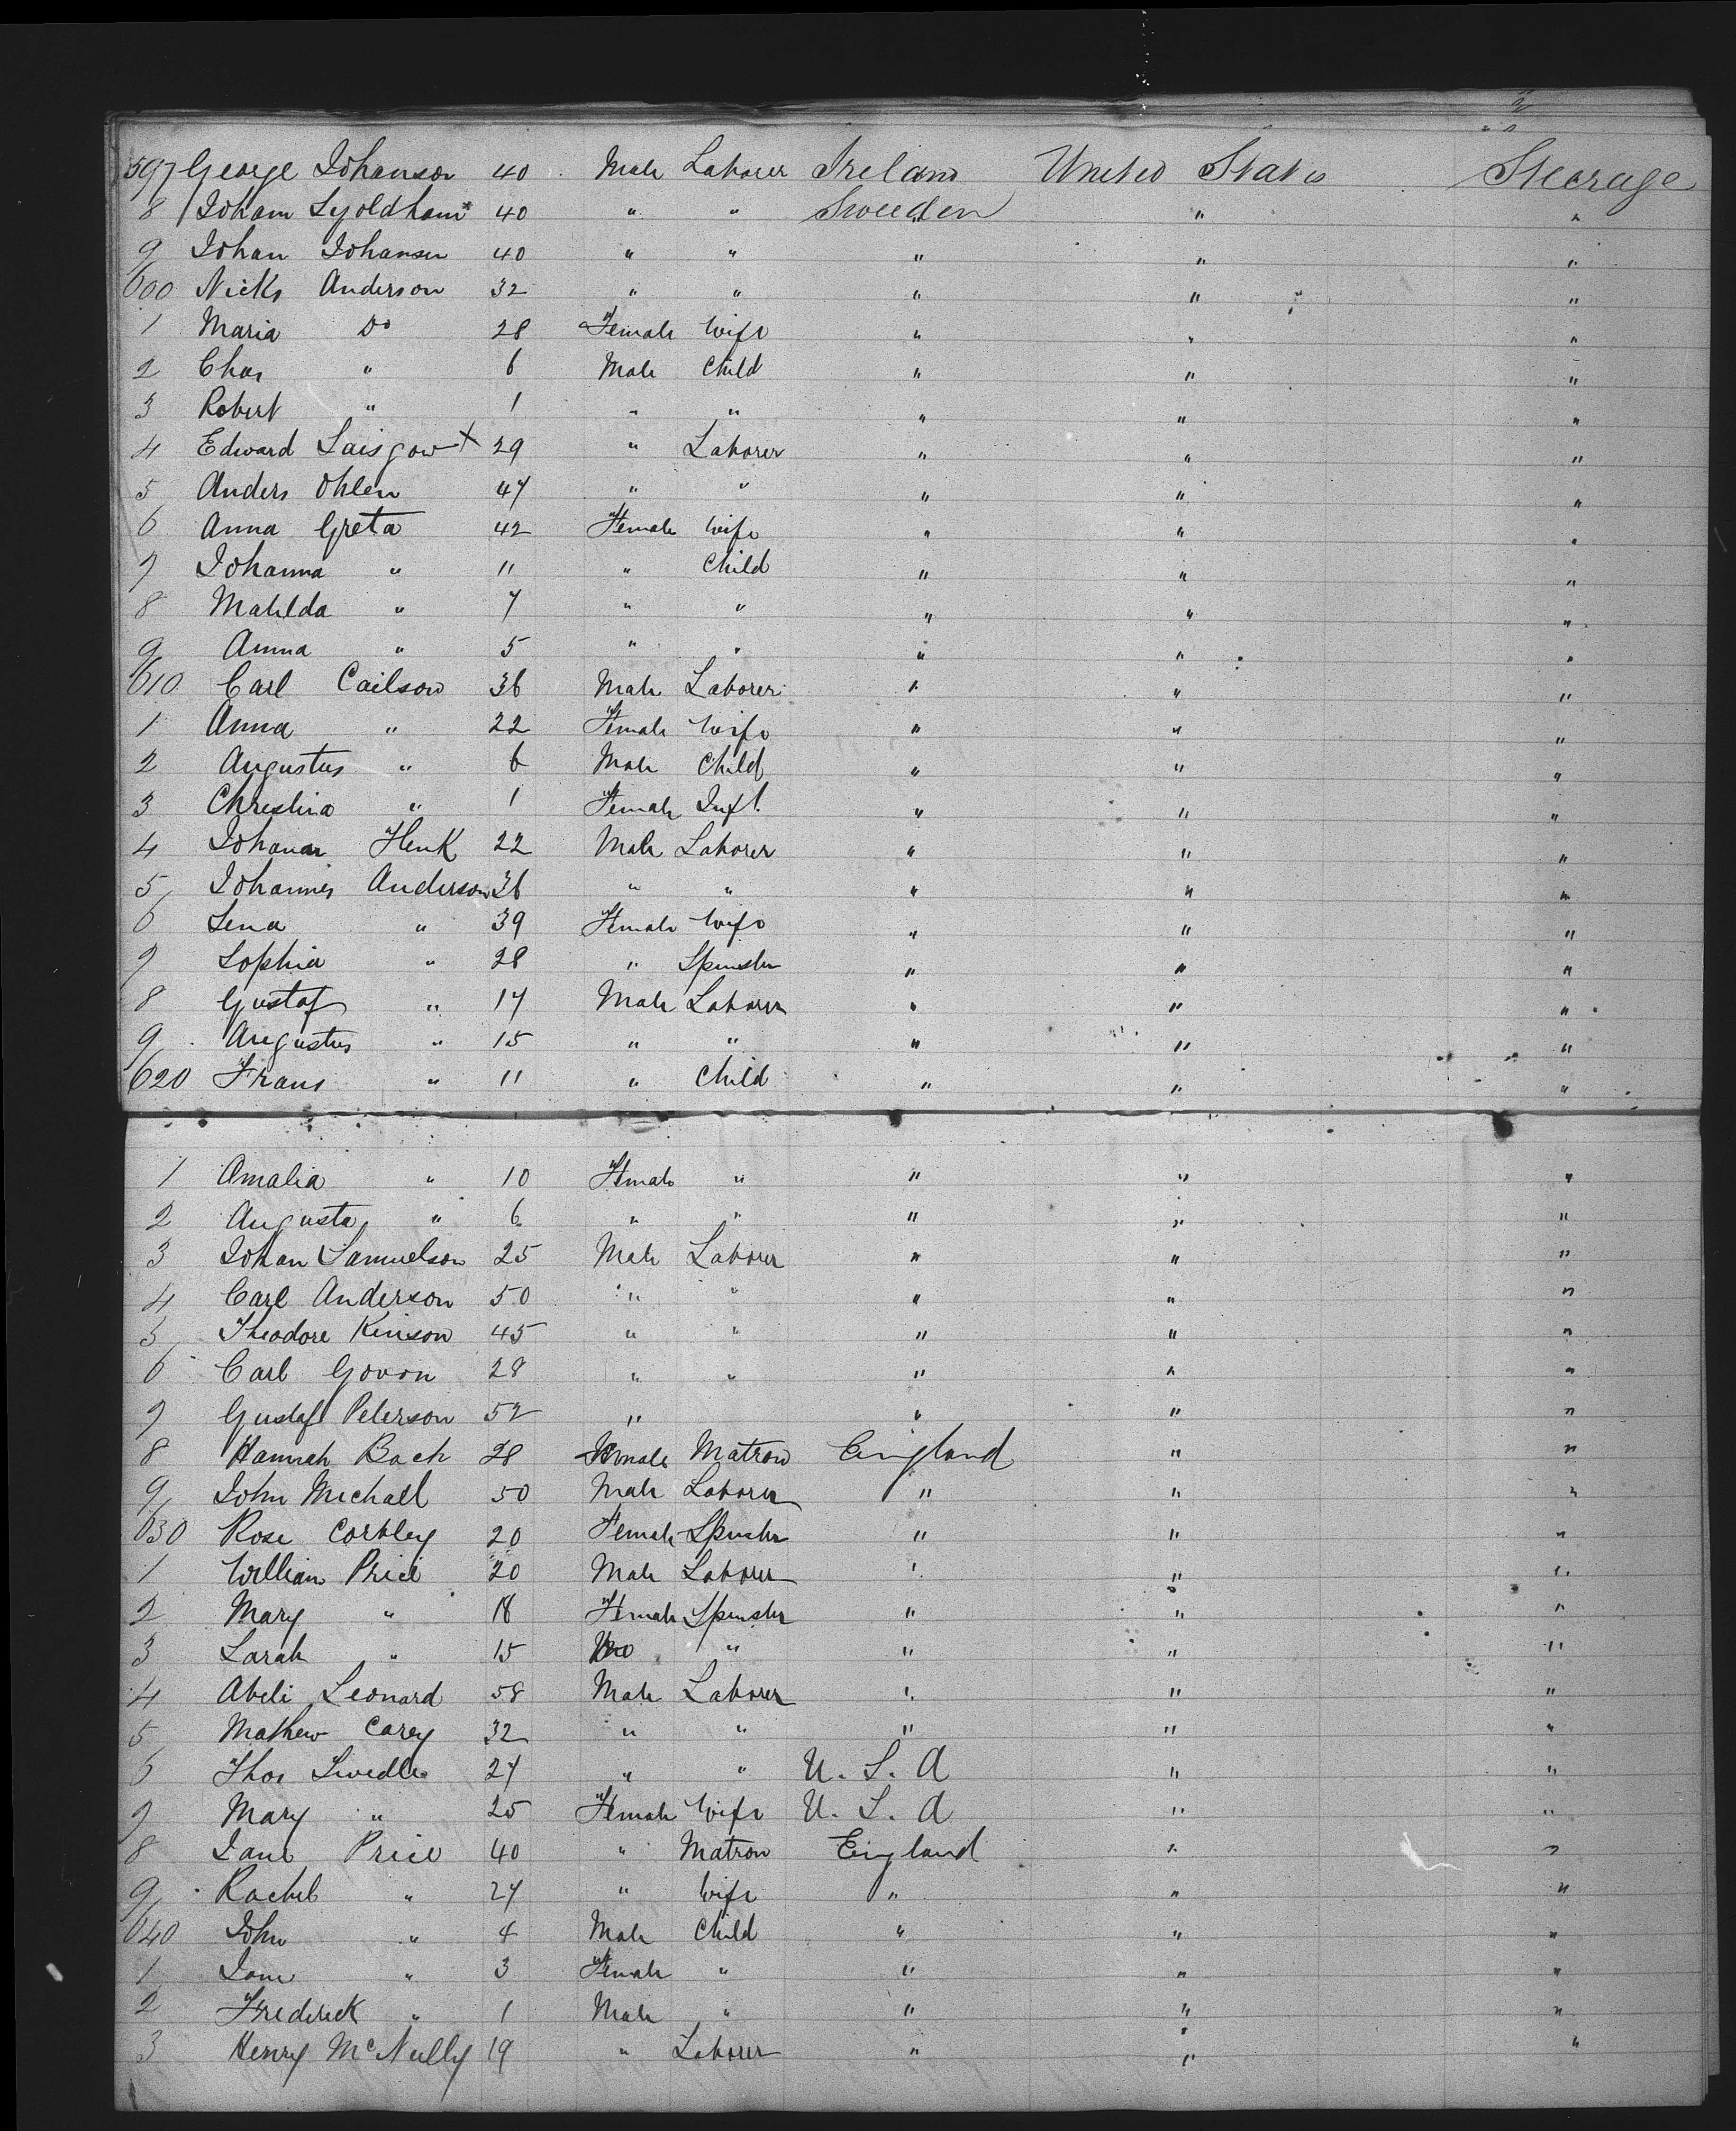 597 George Johanson 40 Male Laborer Ireland United States Steerage
8 Joham Lyoldham* 40 " " Sweeden " "
9 Johan Johansen 40 " " " " "
600 Nicks Anderson 32 " " " " "
1 Maria Do 28 Female Wife " " "
2 Chas " 6 Male Child " " "
3 Robert " 1 " " " " "
4 Edward Laisgow x 29 " Laborer " " "
5 Anders Ohlen 47 " " " " "
6 Anna Greta 42 Female Wife " " "
7 Johanna " 11 " Child " " "
8 Matilda " 7 " " " " "
9 Anna " 5 " " " " "
610 Carl Cailson 36 Male Laborer " " "
1 Anna " 22 Female Wife " " "
2 Augustus " 6 Male Child " " "
3 Christina " 1 Female Inft. " " "
4 Henk 22 Male Laborer " " "
5 Johannes Anderson 36 " " " " "
6 Lena " 39 Female Wife " " "
7 Sophia " 28 " Spinster " " "
8 Gustaf " 17 Male Laborer " " "
9 Augustus " 15 " " " " "
620 Frans " 11 " Child " " "
1 Amalia " 10 Female " " " "
2 Augusta " 6 " " " " "
3 Johan Samuelson 25 Male Laborer " " "
4 Carl Anderson 50 " " " " "
5 Theodore Kinson 45 " " " " "
6 Carl Govon 28 " " " " "
7 Gustaf Peterson 52 " " " "
8 Hannah Bach 28 Female Matron England " "
9 John Michael 50 Male Laborer " " "
630 Rose Corkley 20 Female Spinster " " "
1 William Price 20 Male Laborer " " "
2 Mary " 18 Female Spinster " " "
3 Sarah " 15 " " " "
4 Abeli Leonard 58 Male Laborer " " "
5 Mathew Carey 32 " " " " "
6 Thos Swedle 27 " " U. S. A " "
7 Mary " 25 Female Wife U. S. A " "
8 Jane Price 40 " Matron England " "
9 Rachel " 27 " Wife " " "
640 John " 4 Male Child " " "
1 Jane " 3 Female " " " "
2 Frederick " 1 Male " " " "
3 Henry McNully 19 " Laborer " " "